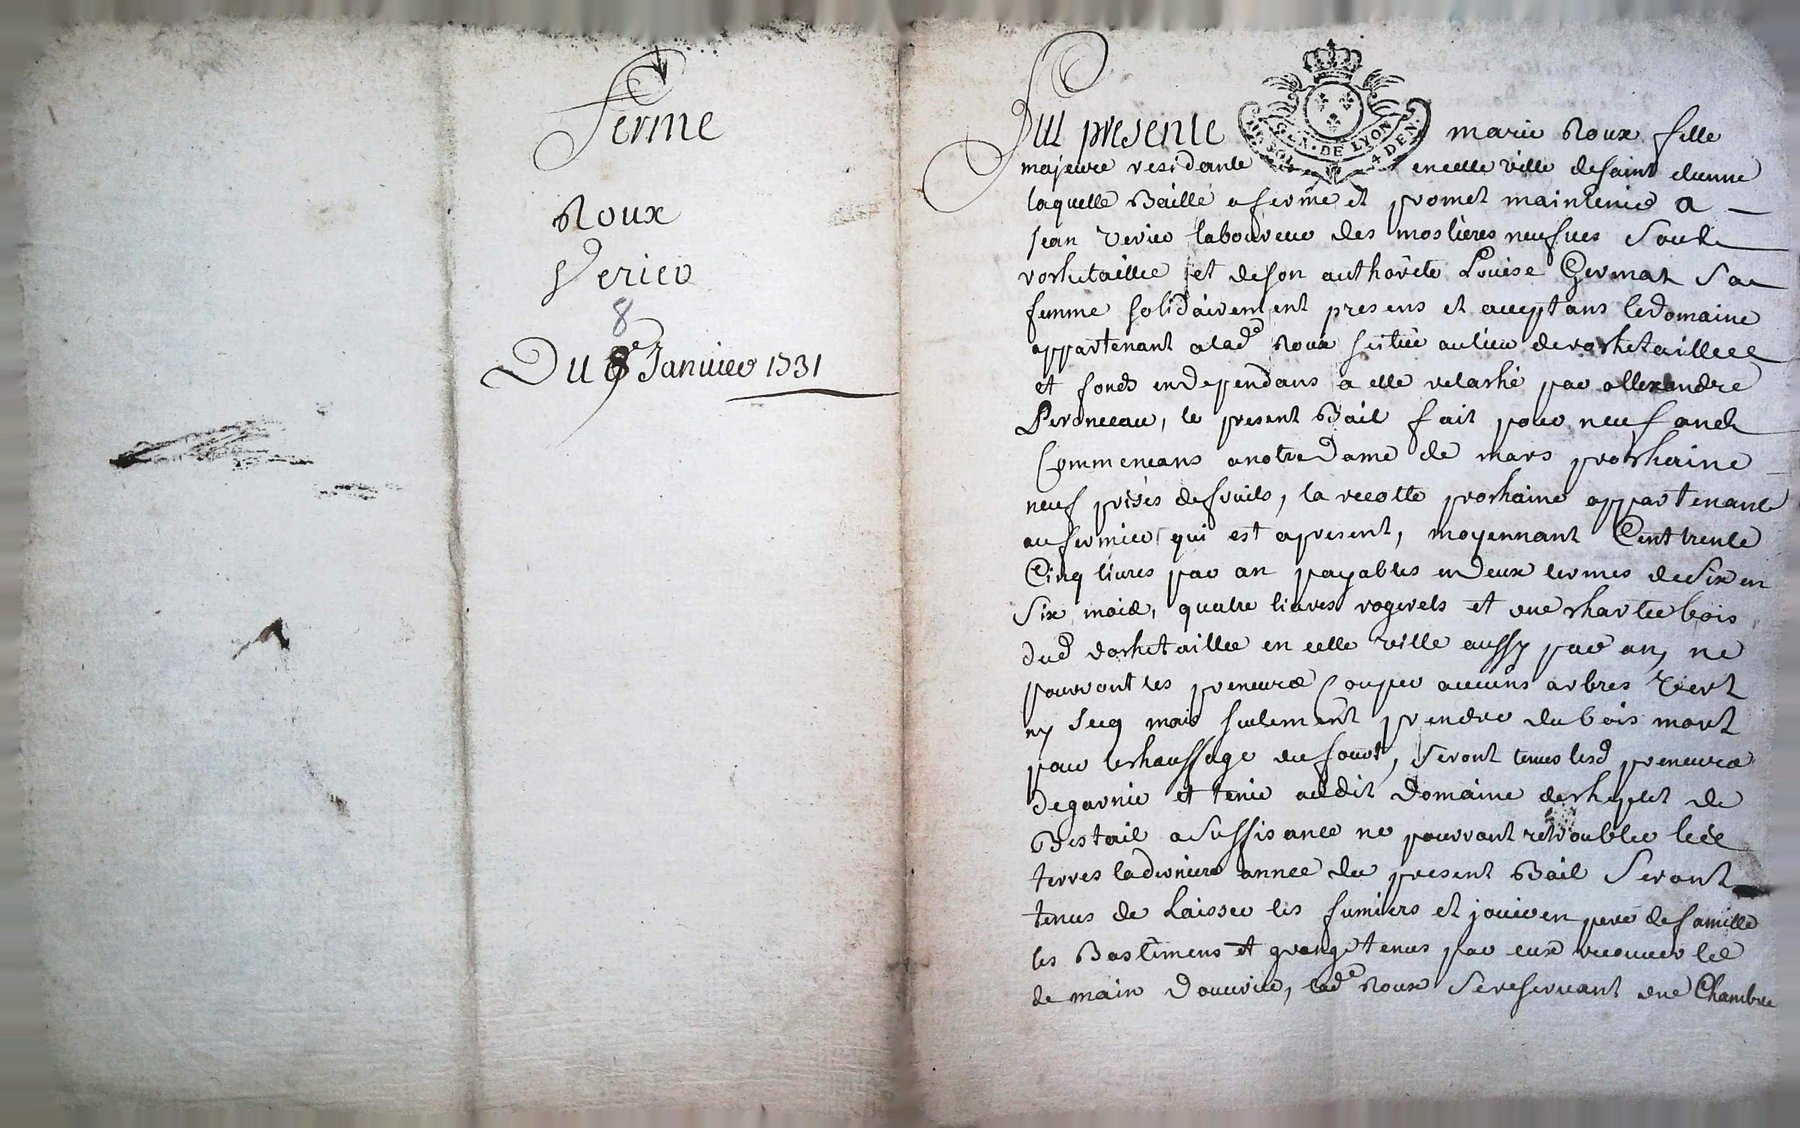 Ferme
Roux
Verier
8
Du 8e Janvier 1731
Fut presente marie Roux fille
GEN. DE LYON
4 DEN.
majeure residante en celle ville de saint etienne
laquelle Baille a ferme et promet maintenir a
jean Verier laboureur des mostieres neufues Soubs
rochetaillee et de son authorité Louise Germat Sa
femme solidairement presens et acceptans le domaine
appartenant a lade Roux scitué au lieu de rochetaillee
et fonds en dependans a elle relaché par allexandre
Peronceau, le present Bail fait pour neuf ans
Commencans a notre Dame de mars prochaine
neuf prises de fruits, la recolte prochaine appartenant
au fermier qui est apresent, moyennant Cent trente
Cinq livres par an payables en deux termes de Six en
Six mois, quatre livres et une chartée bois
dud rochetaillee en celle ville aussy par an, ne
pourront les preneurs Couper aucuns arbres Vert
ny Secq mais seulement prendre du bois mort
pour le chauffage du fourt, Seront tenus lesd preneurs
de garnir et tenir audit Domaine de cheptet de
Bestail a Suffisance ne pourront retroubler les
terres la derniere annee du present Bail Seront
tenus de Laisser les fumiers et jouir en pere de famille
les Bastimens et grange tenus par eux recouvers
de main Douvrier, lade Roux Se reservant une Chambre